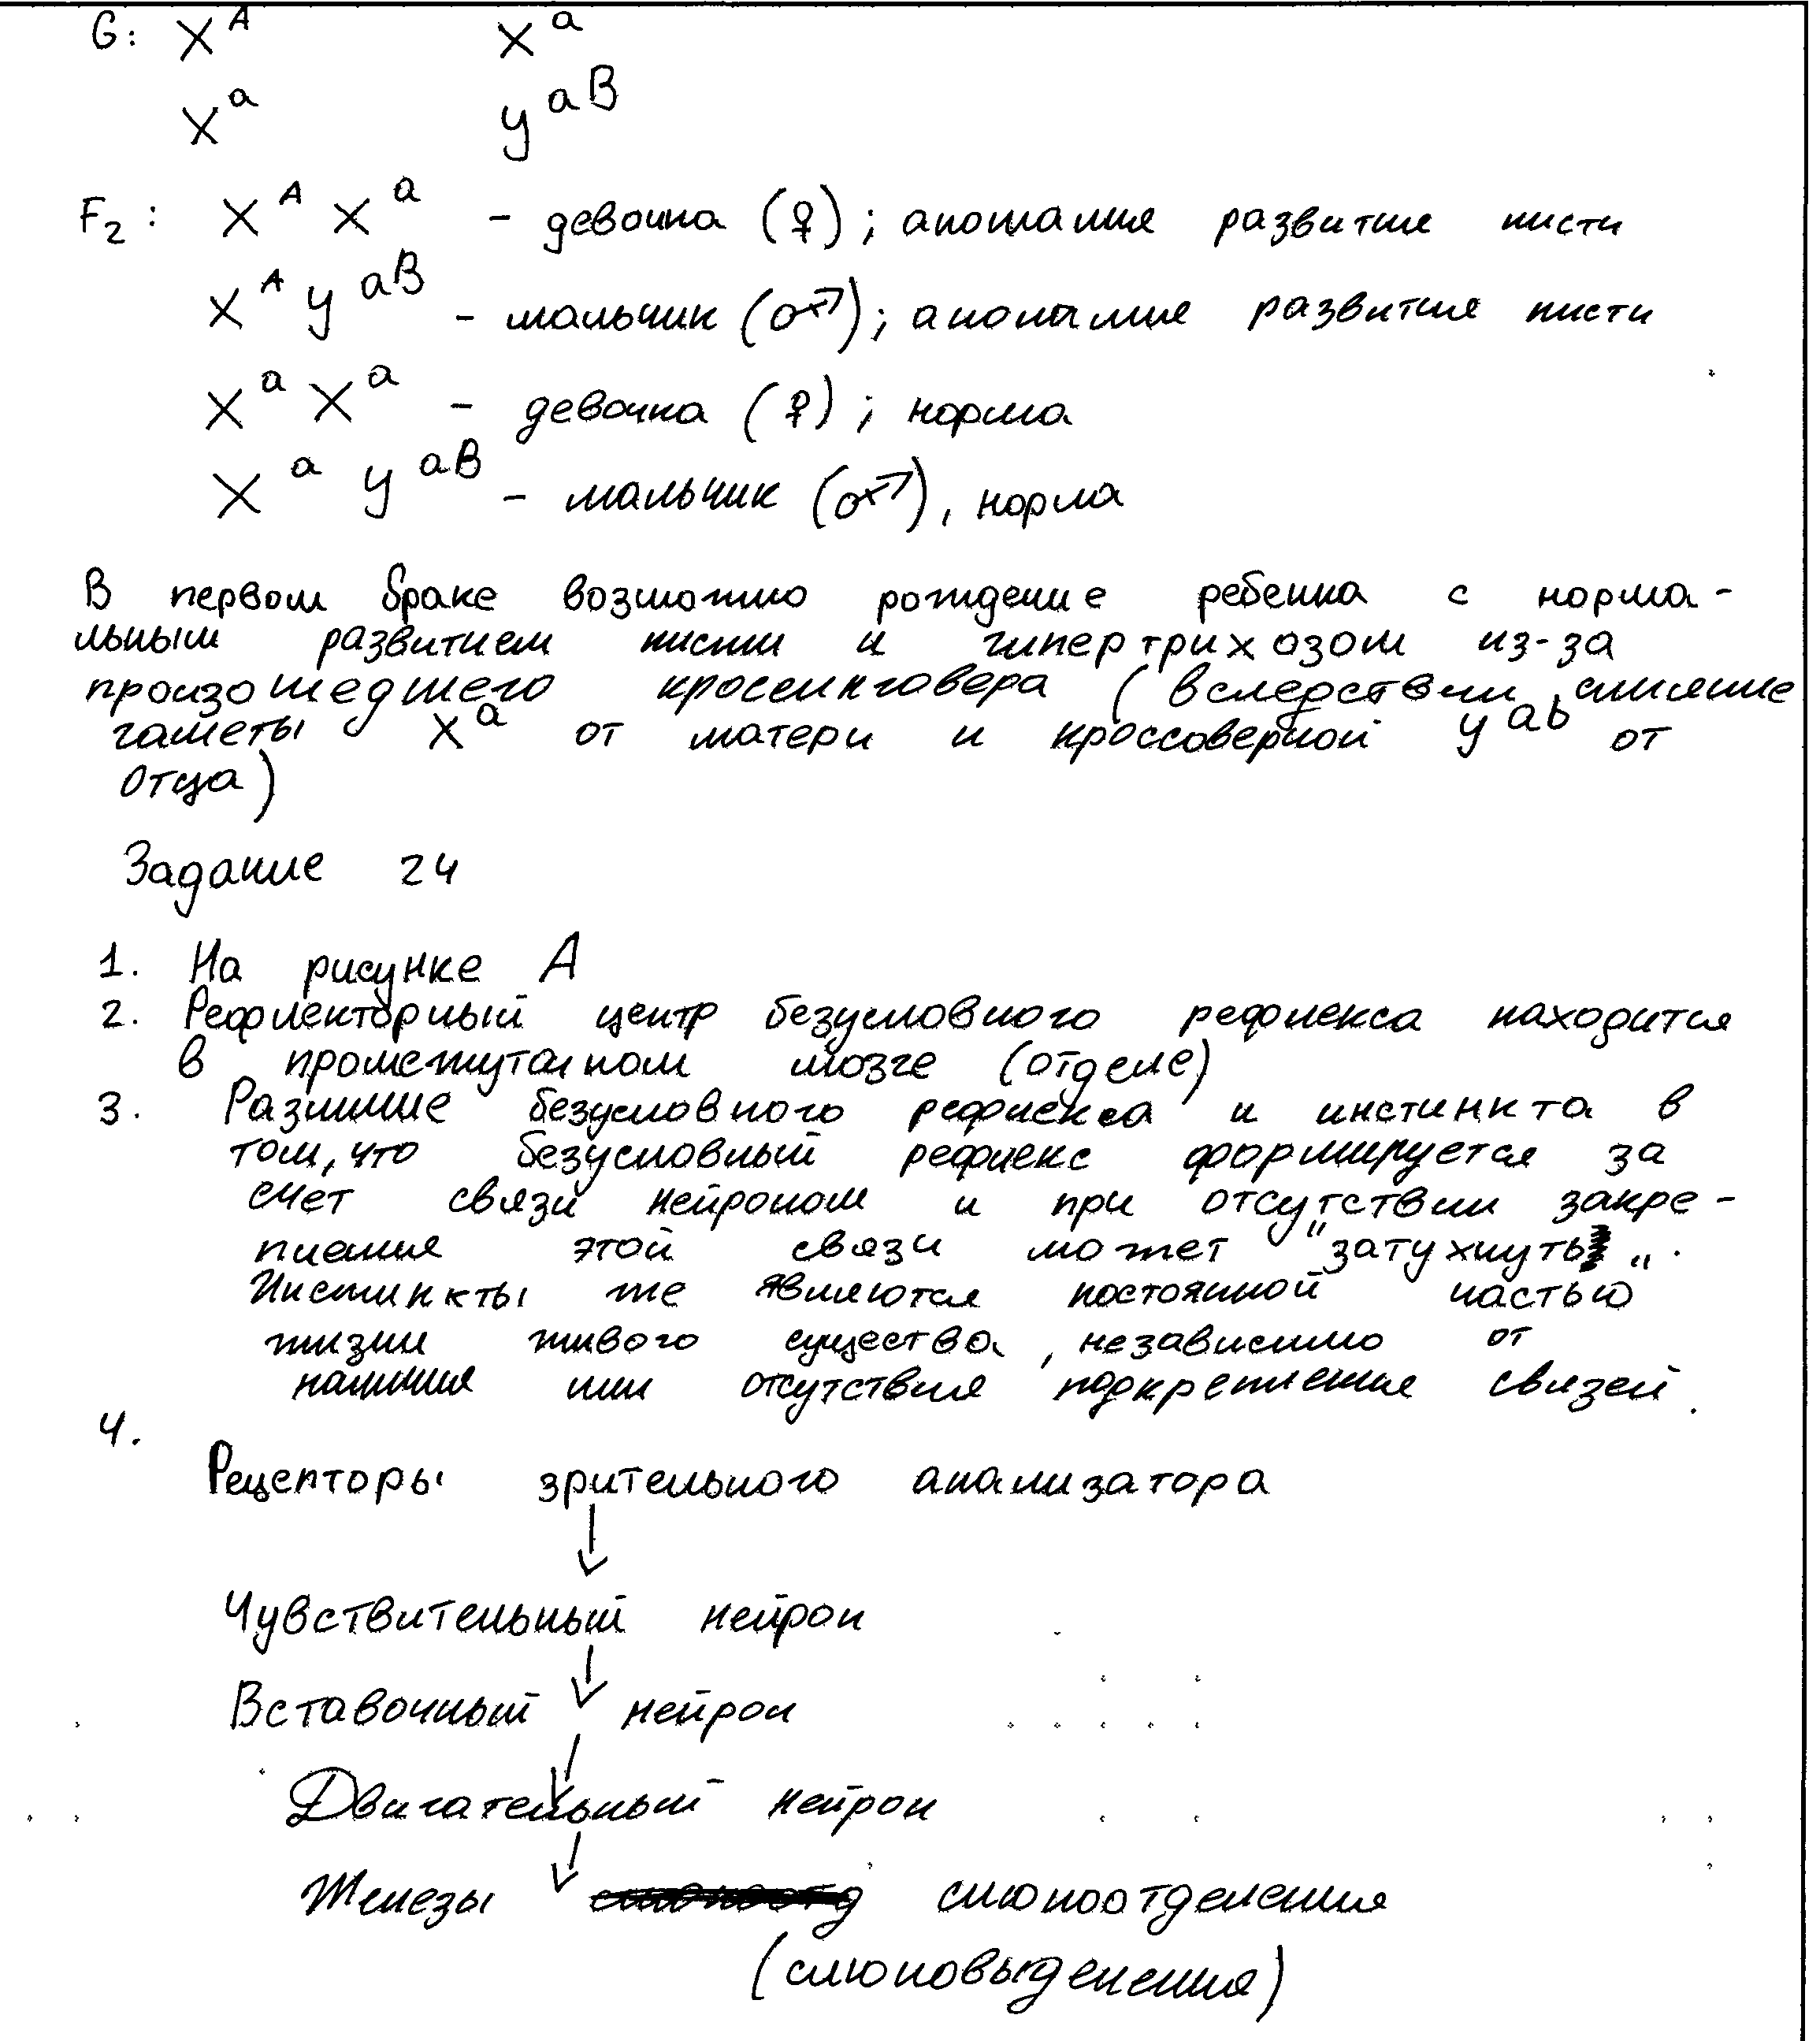 G: X^A X^a
X^a y^aB
F2: X^A X^a - девочка (♀); аномалия развития кисти
X^A y^aB - мальчик (♂); аномалия развития кисти
X^a X^a - девочка (♀); норма
X^a y^aB - мальчик (♂), норма
В первом браке возможно рождение ребенка с норма-
льным развитием кисти и гипертрихозом из-за
произошедшего кроссинговера (вследствии слияние
гаметы X^a от матери и кроссоверной y^ab от
отца)
Задание 24
1. На рисунке А
2. Рефлекторный центр безусловного рефлекса находится
в промежуточном мозге (отделе)
3. Различие безусловного рефлекса и инстинкта в
том, что безусловный рефлекс формируется за
счет связи нейроном и при отсутствии закре-
пления этой связи может "затухнуть".
Инстинкты же являются постоянной частью
жизни живого существа, независимо от
наличия или отсутствия подкрепления связей.
4.
Рецепторы зрительного анализатора
↓
Чувствительный нейрон
↓
Вставочный нейрон
↓
Двигательный нейрон
↓
Железы слюноотделения
(слюновыделения)